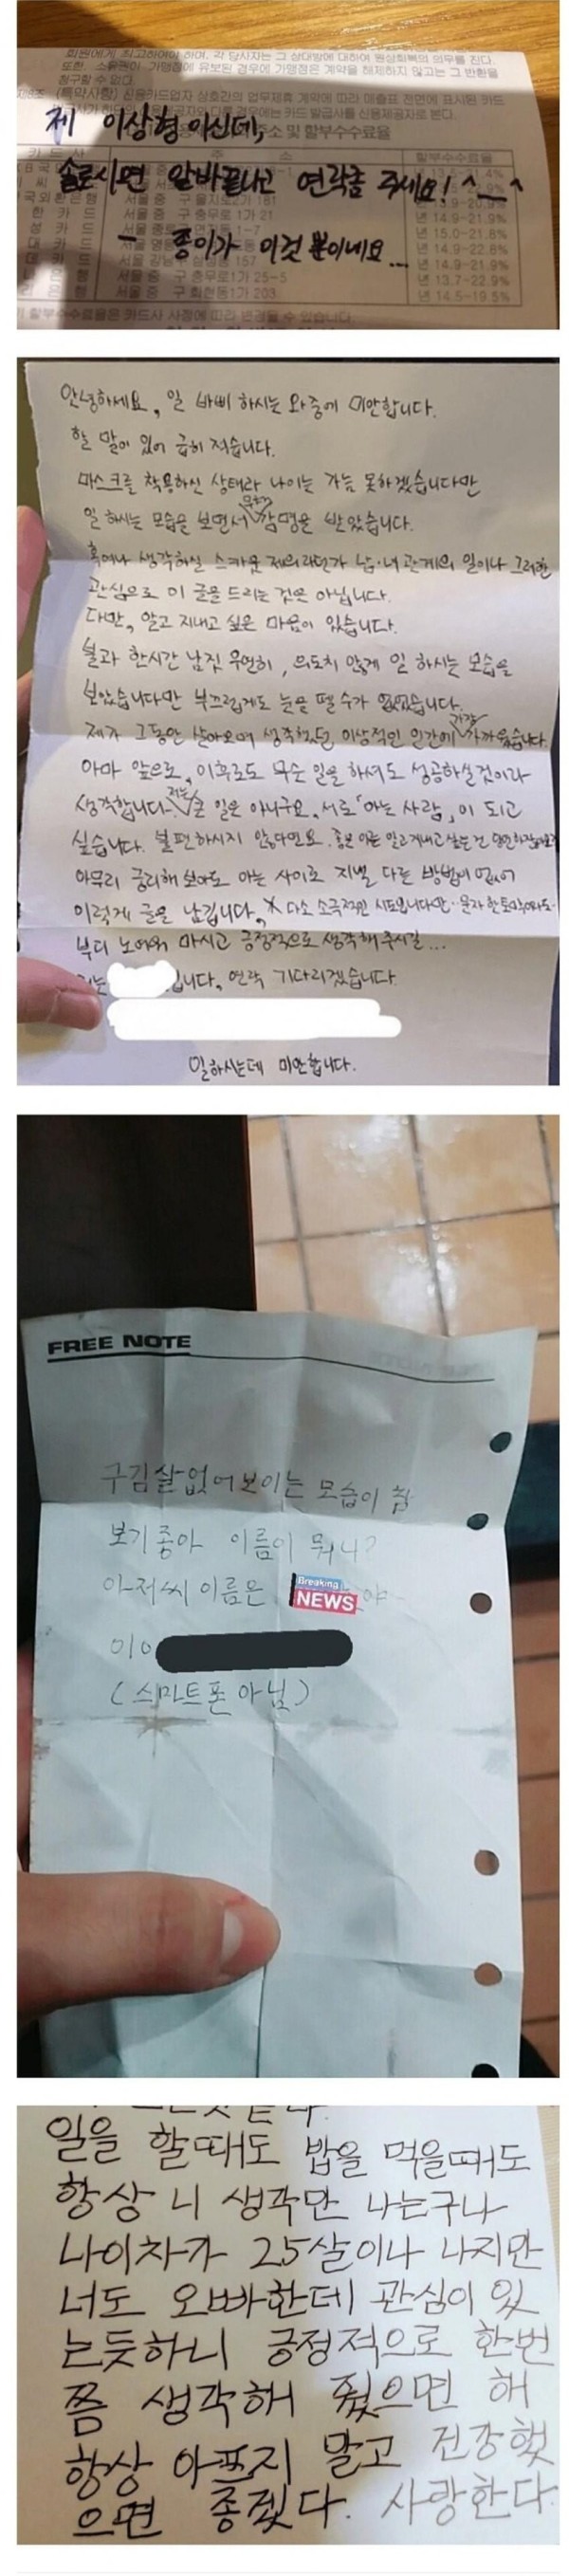 회원에게 최고하여야 하며, 각 당사자는 그 상대방에 대하여 원상회복의 의무를 진다.
또한 소유권이 가맹점에 유보된 경우에 가맹점은 계약을 해제하지 않고는 그 반환을
청구할 수 없다.
(특약사항) 신용카드업자 상호간의 업무제휴 계약에 따라 매출표 전면에 표시된 카드
경우에는 카드 발급사를 신용제공자로 본다.
제 이상형이신데,
주소 및 할부수수료율
카 드 사 주 소 할부수수료율
솔로시면 알바끝나고 연락좀 주세요! ^__^
국외환은행 서울 중 구 을지로2가 181
한 카 드 서울 중 구 충무로1가 21 년 14.9-21.9%
성 카 드 년 15.0-21.8%
- 종이가 이것 뿐이네요...
대 카 드 년 14.9-22.8%
데 카 드 서울 강남 년 14.9-21.9%
은 행 서울 중 구 충무로1가 25-5 년 13.7-22.9%
은 행 서울 중 구 회현동1가 203 년 14.5-19.5%
할부수수료율은 카드사 사정에 따라 변경될 수 있습니다.
안녕하세요, 일 바삐 하시는 와중에 미안합니다.
할 말이 있어 급히 적습니다.
마스크를 착용하신 상태라 나이는 가늠 못하겠습니다만
일 하시는 모습을 보면서 무척 감명을 받았습니다.
혹여나 생각하실 스카웃 제의라던가 남·녀 관계의 일이나 그러한
관심으로 이 글을 드리는 것은 아닙니다.
다만, 알고 지내고 싶은 마음이 있습니다.
불과 한시간 남짓 우연히, 의도치 않게 일 하시는 모습을
보았습니다만 부끄럽게도 눈을 뗄 수가 없었습니다.
제가 그동안 살아오며 생각했던 이상적인 인간에 가장 가까웠습니다.
아마 앞으로, 이후로도 무슨 일을 하셔도 성공하실것이라
생각합니다. 저는 큰 일은 아니구요, 서로 「아는 사람」이 되고
싶습니다. 불편하시지 않다면요. 좋은 이를 알고지내고 싶은건
아무리 궁리해 보아도 아는 사이로 지낼 다른 방법이 없어
이렇게 글을 남깁니다. ※ 다소 소극적인 시도입니다만..문자 한 통이라도..
부디 노여워 마시고 긍정적으로 생각해 주시길...
저는 입니다. 연락 기다리겠습니다.
일하시는데 미안합니다.
FREE NOTE
구김살없어보이는 모습이 참
보기좋아 이름이 뭐니?
아저씨 이름은 Breaking NEWS 야
010
(스마트폰 아님)
일을 할때도 밥을 먹을때도
항상 니 생각만 나는구나
나이차가 25살이나 나지만
너도 오빠한데 관심이 있
는듯하니 긍정적으로 한번
쯤 생각해 줬으면 해
항상 아프지 말고 건강했
으면 좋겠다. 사랑한다.